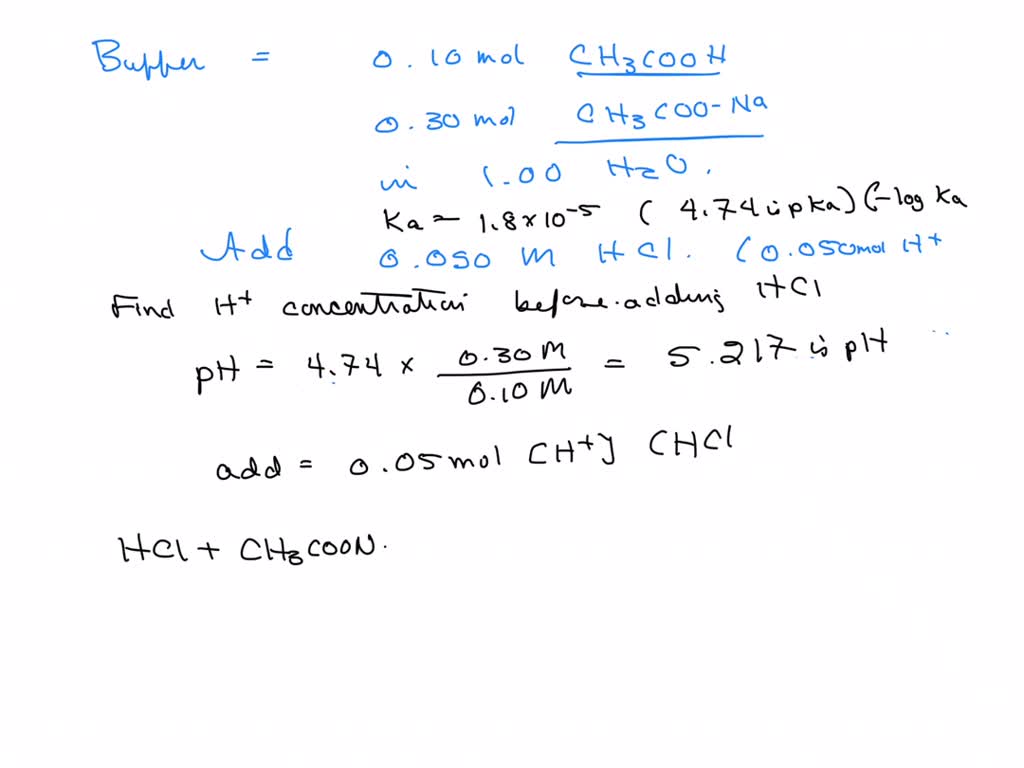 Buffer = 0.10 mol CH3COOH
0.30 mol CH3COO-Na
in 1.00 H2O.
Ka = 1.8 x 10-5 ( 4.74 is pKa) (-log Ka
Add 0.050 M HCl. (0.050mol H+
Find H+ concentration before adding HCl
pH = 4.74 x 0.30 M / 0.10 M = 5.217 is pH
add = 0.05 mol CH+] CHCl
HCl + CH3COON.